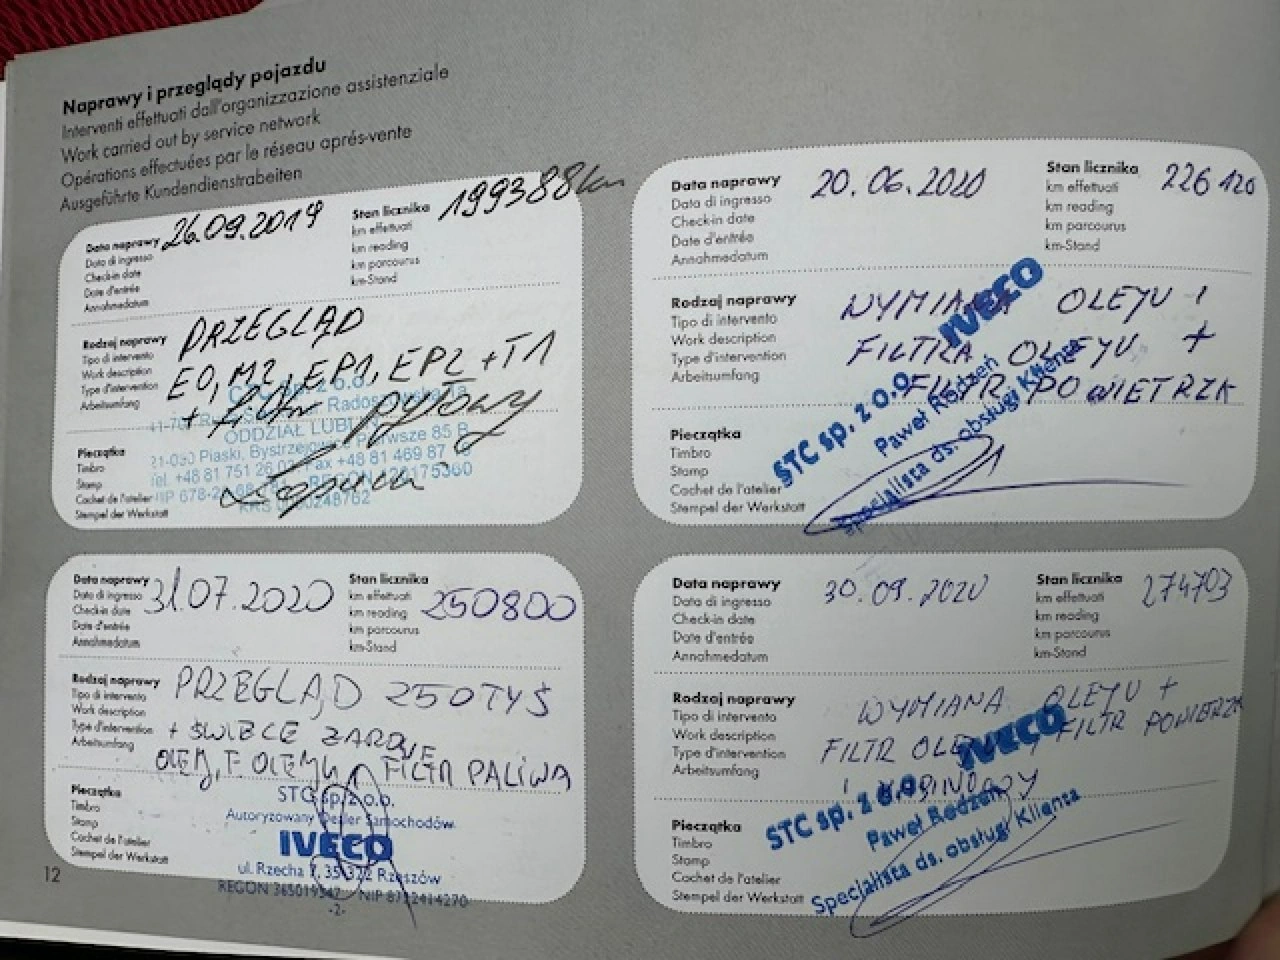 Naprawy i przeglądy pojazdu
Interventi effettuati dall'organizzazione assistenziale
Work carried out by service network
Opérations effectuées par le réseau aprés-vente
Ausgeführte Kundendienstrabeiten
Data naprawy 26.09.2019 Stan licznika 199388km
Data di ingresso km effettuati
Check-in date km reading
Date d'entrée km parcourus
Annahmedatum km-Stand
Rodzaj naprawy PRZEGLĄD
Tipo di intervento
Work description E0, M2, EP1, EP2 + T1
Type d'intervention
Arbeitsumfang + pyłowy
ODDZIAŁ
Pieczątka 21-030 Piaski, Bystrzejowice Pierwsze 85 B
Timbro
Stamp
Cachet de l'atelier
Stempel der Werkstatt
Data naprawy 20.06.2020 Stan licznika 226 120
Data di ingresso km effettuati
Check-in date km reading
Date d'entrée km parcourus
Annahmedatum km-Stand
Rodzaj naprawy WYMIANA OLEJU I
Tipo di intervento
Work description FILTRA OLEJU +
Type d'intervention
Arbeitsumfang FILTR POWIETRZA
IVECO
STC sp. z o.o.
Paweł Redzeń
Specjalista ds. obsługi Klienta
Pieczątka
Timbro
Stamp
Cachet de l'atelier
Stempel der Werkstatt
Data naprawy 31.07.2020 Stan licznika 250800
Data di ingresso km effettuati
Check-in date km reading
Date d'entrée km parcourus
Annahmedatum km-Stand
Rodzaj naprawy PRZEGLĄD 250TYŚ
Tipo di intervento
Work description + ŚWIECE ŻAROWE
Type d'intervention
Arbeitsumfang OLEJ, F. OLEJU, FILTR PALIWA
Pieczątka STC sp. z o.o.
Timbro Autoryzowany Dealer Samochodów
Stamp IVECO
Cachet de l'atelier ul. Rzecha 7, 35-322 Rzeszów
Stempel der Werkstatt REGON NIP 8722414270
-2-
Data naprawy 30.09.2020 Stan licznika 274703
Data di ingresso km effettuati
Check-in date km reading
Date d'entrée km parcourus
Annahmedatum km-Stand
Rodzaj naprawy WYMIANA OLEJU +
Tipo di intervento
Work description FILTR OLEJU, FILTR POWIETRZA
Type d'intervention
Arbeitsumfang I KABINOWY
IVECO
STC sp. z o.o.
Paweł Redzeń
Specjalista ds. obsługi Klienta
Pieczątka
Timbro
Stamp
Cachet de l'atelier
Stempel der Werkstatt
12